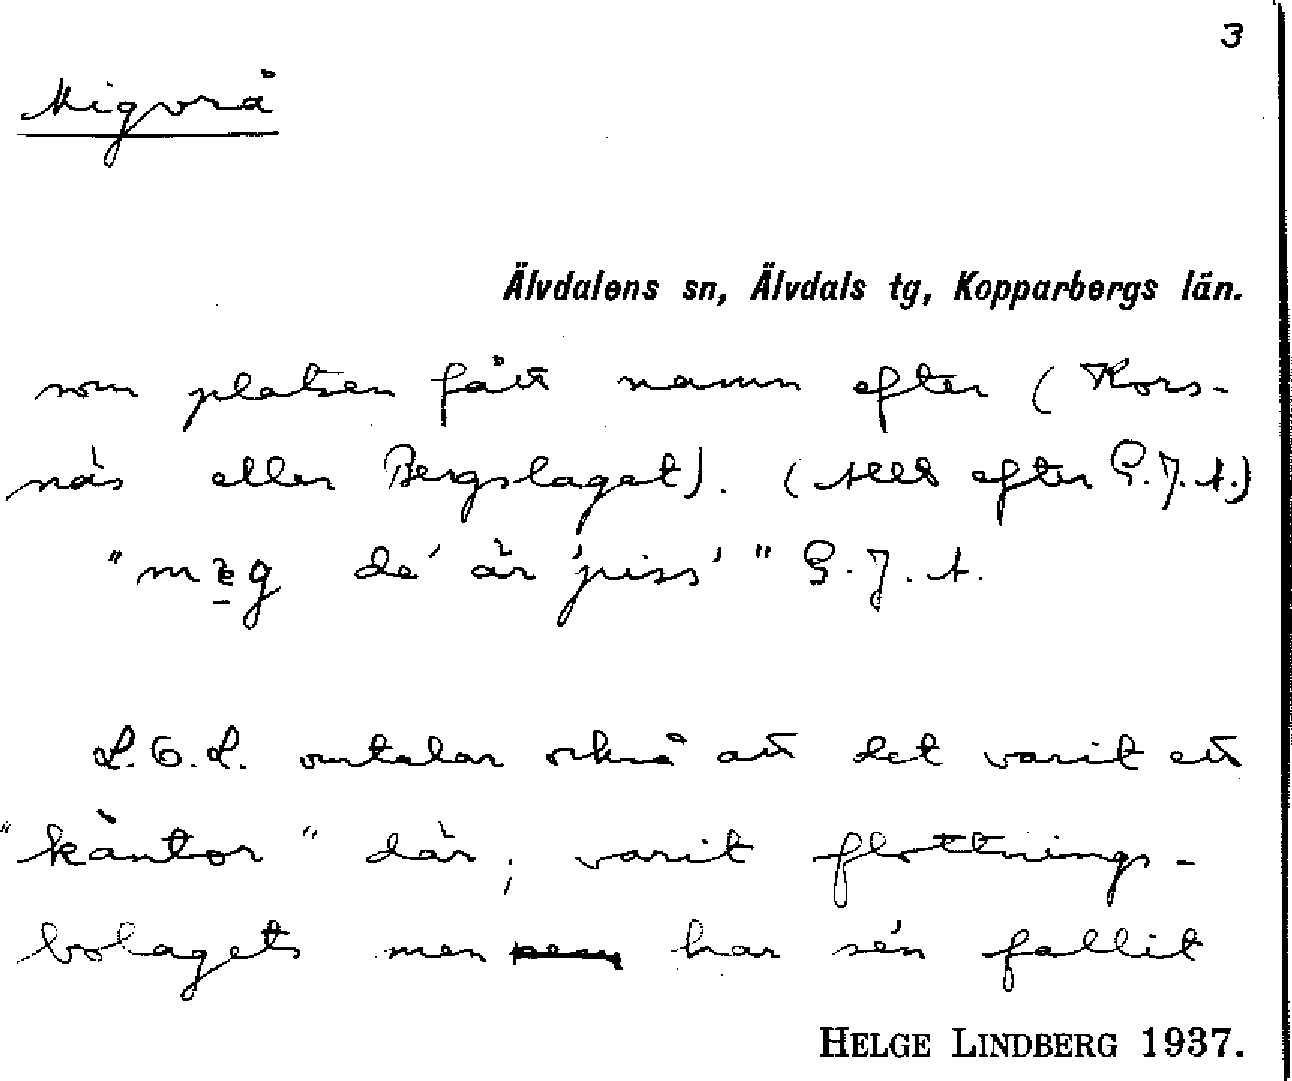 3
Migvrå
Älvdalens sn, Älvdals tg, Kopparbergs län.
som platsen fått namn efter (Kors-
näs eller Bergslaget). (Allt efter G.J.A.)
"mɛg de´ är 'piss'" G.J.A.
L.O.L. omtalar också att det varit ett
"käntor" där, varit flottnings-
bolagets men har sén fallit
HELGE LINDBERG 1937.